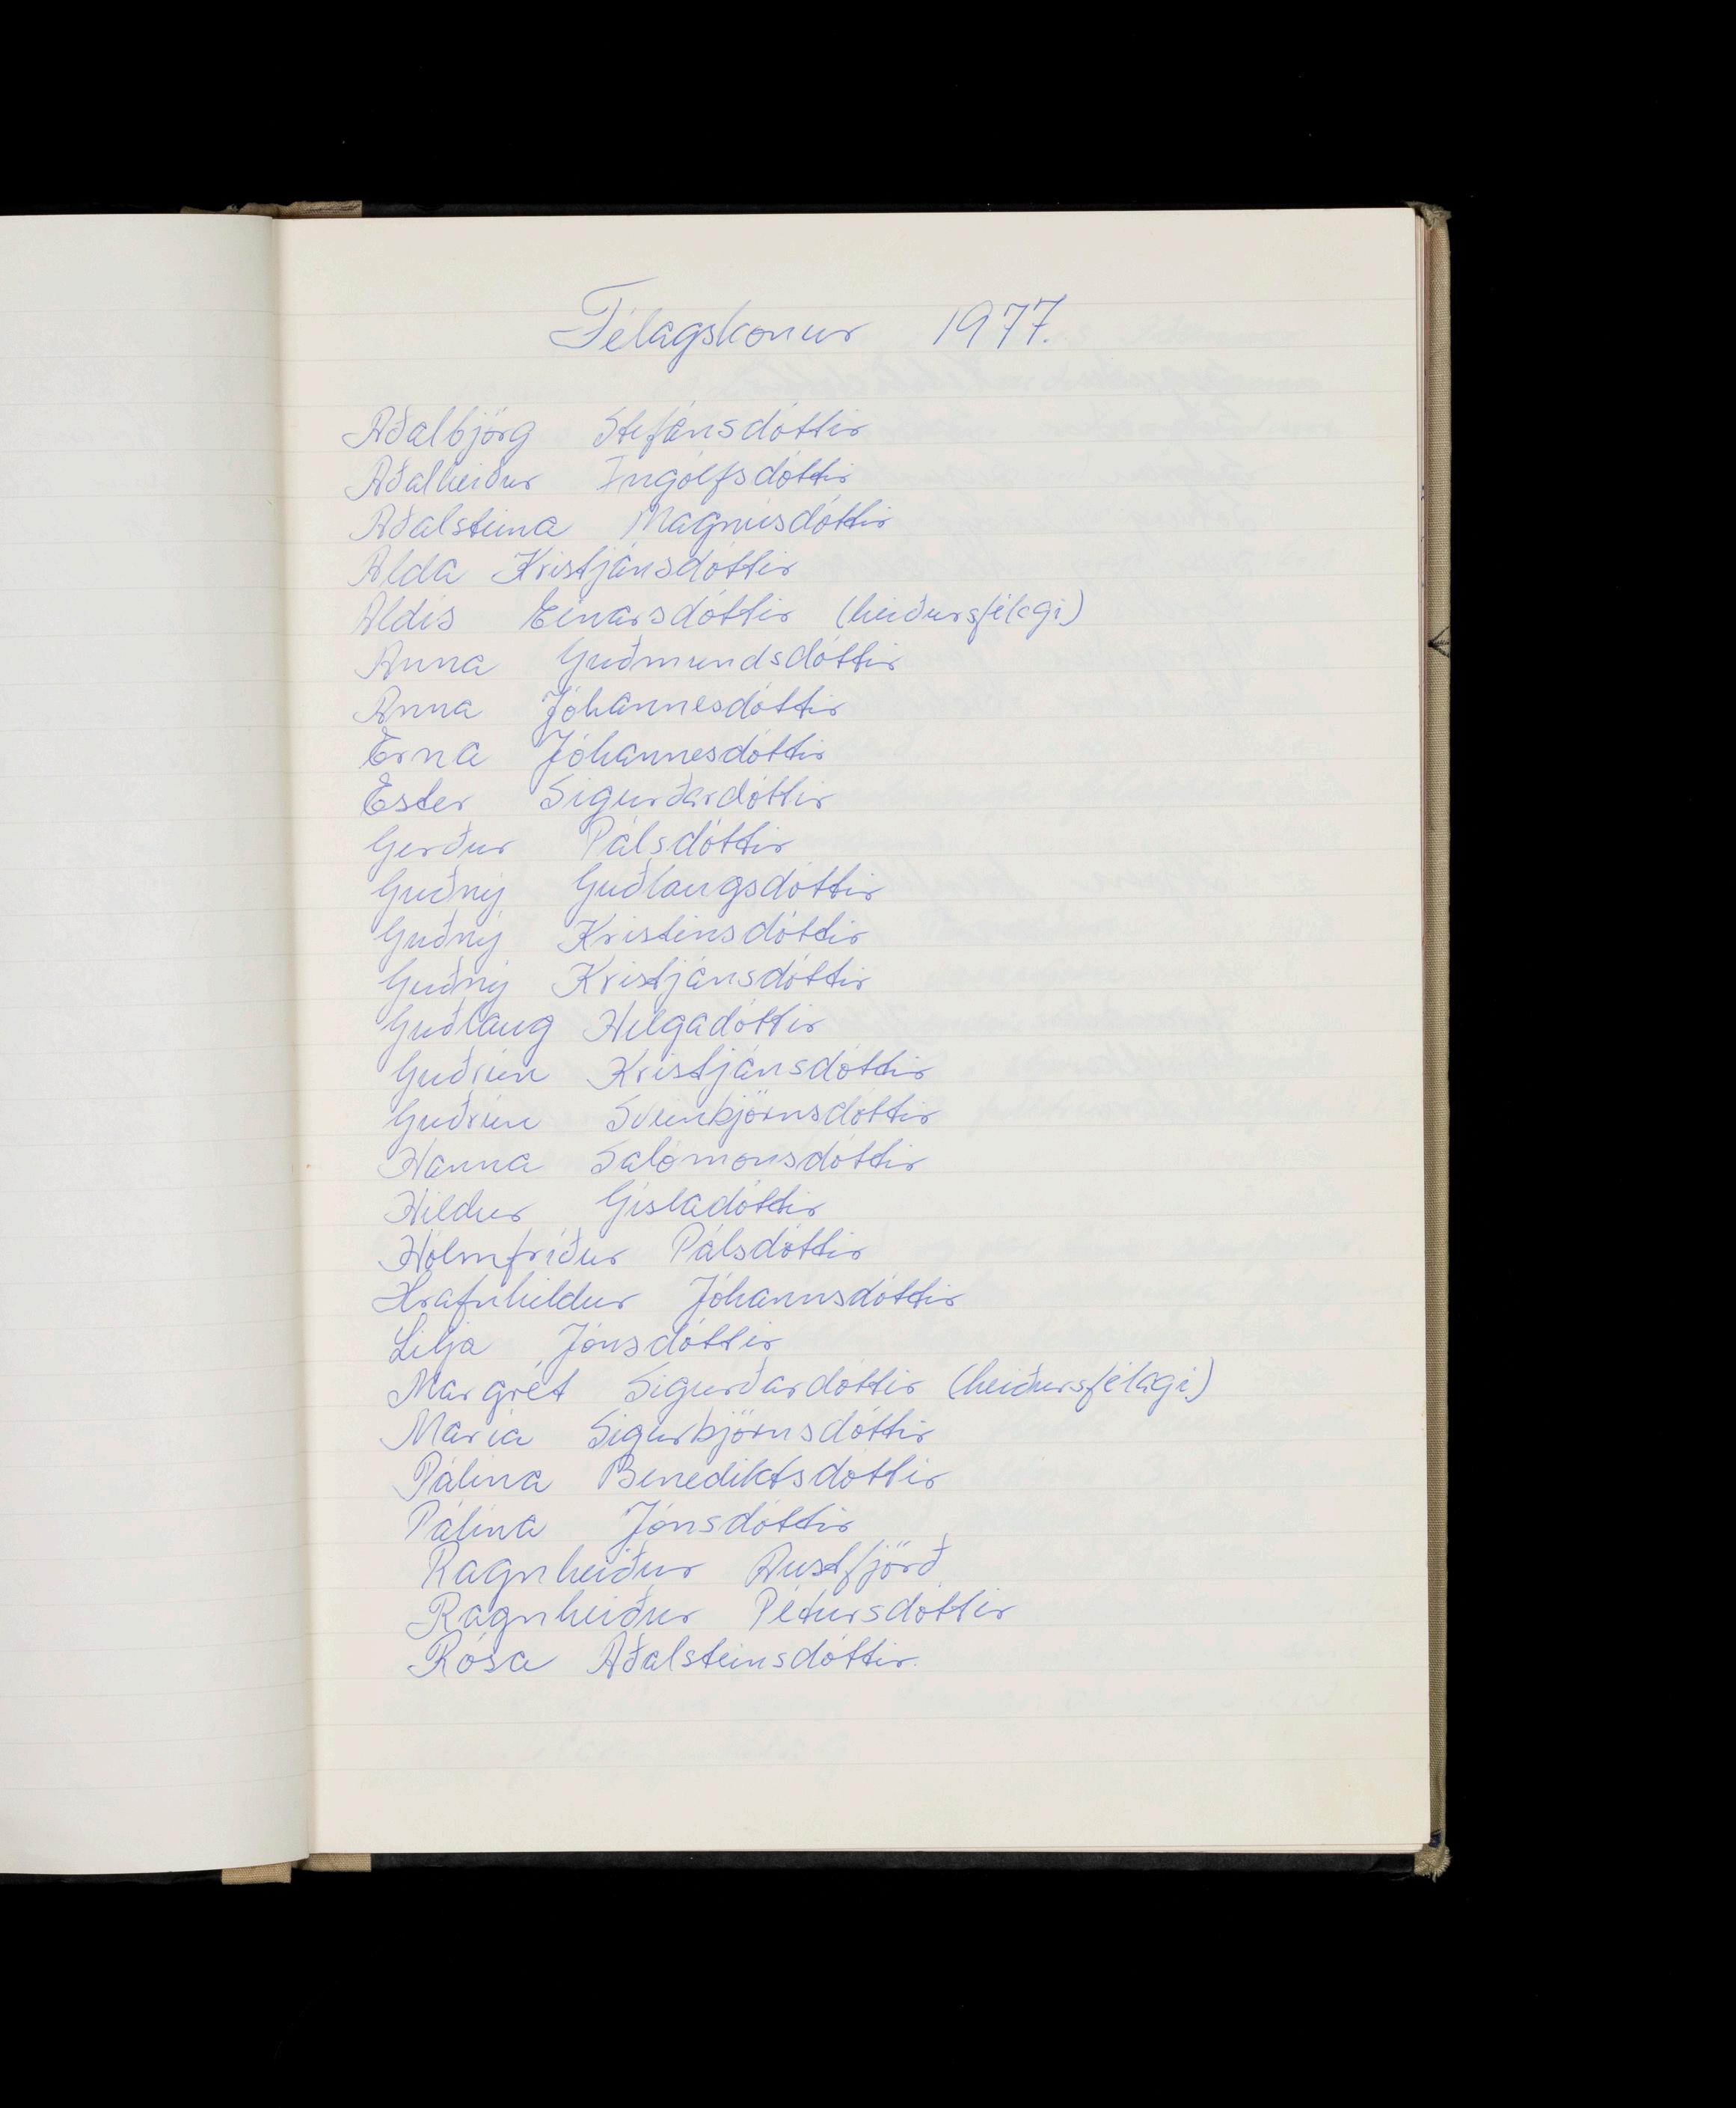 Félagskonur 1977.
Aðalbjörg Stefánsdóttir
Aðalheiður Ingólfsdóttir
Aðalsteina Magnúsdóttir
Alda Kristjánsdóttir
Aldís Einarsdóttir (heiðursfélagi)
Anna Guðmundsdóttir
Anna Jóhannesdóttir
Erna Jóhannesdóttir
Ester Sigurðardóttir
Gerður Pálsdóttir
Guðný Guðlaugsdóttir
Guðný Kristinsdóttir
Guðný Kristjánsdóttir
Guðlaug Helgadóttir
Guðrún Kristjánsdóttir
Guðrún Sveinbjörnsdóttir
Hanna Salómonsdóttir
Hildur Gísladóttir
Hólmfríður Pálsdóttir
Hrafnhildur Jóhannsdóttir
Lilja Jónsdóttir
Margrét Sigurðardóttir (heiðursfélagi)
María Sigurbjörnsdóttir
Pálína Benediktsdóttir
Pálína Jónsdóttir
Ragnheiður Austfjörð
Ragnheiður Pétursdóttir
Rósa Aðalsteinsdóttir.